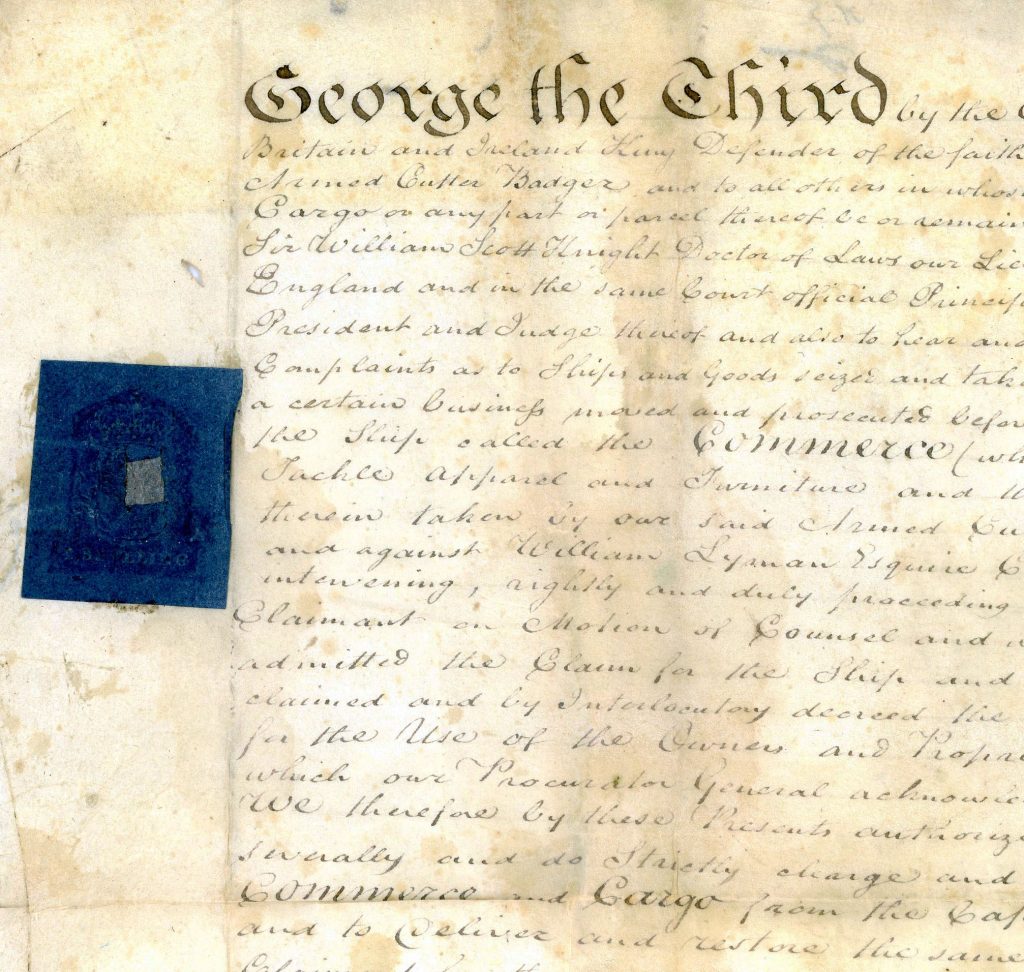 George the Third by the
Britain and Ireland King Defender of the faith
Armed Cutter Badger and to all others in whose
Cargo or any part or parcel thereof be or remain
Sir William Scott Knight Doctor of Laws our Lie
England and in the same Court official Princip
President and Judge thereof and also to hear and
Complaints as to Ships and Goods seized and tak
a certain business moved and prosecuted befor
the Ship called the Commerce (wh
Tackle Apparel and Furniture and th
therein taken by our said Armed Cu
and against William Lyman Esquire C
intervening, rightly and duly proceeding
Claimant on Motion of Counsel and
admitted the Claim for the Ship and
claimed and by Interlocutory decreed the
for the Use of the Owners and Propr
which our Procurator General acknowle
We therefore by these Presents authorize
severally and do Strictly charge and
Commerce and Cargo from the Cap
and to Deliver and restore the same